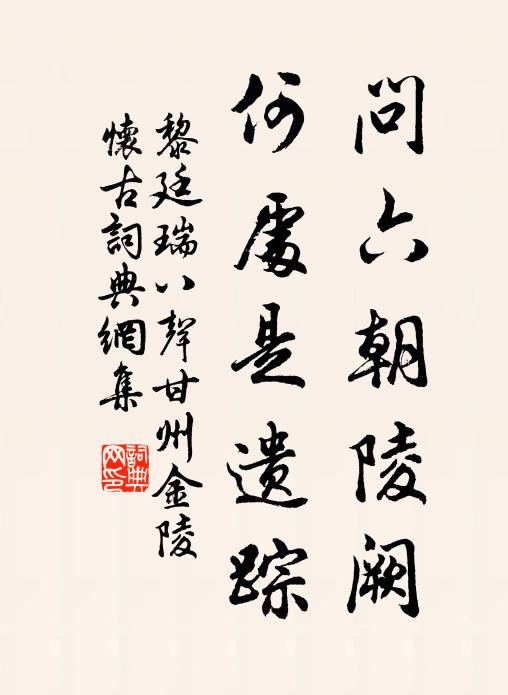 問六朝陵阙
何處是遺踪
黎廷瑞八聲甘州金陵
懷古詞典網集
詞典
网印